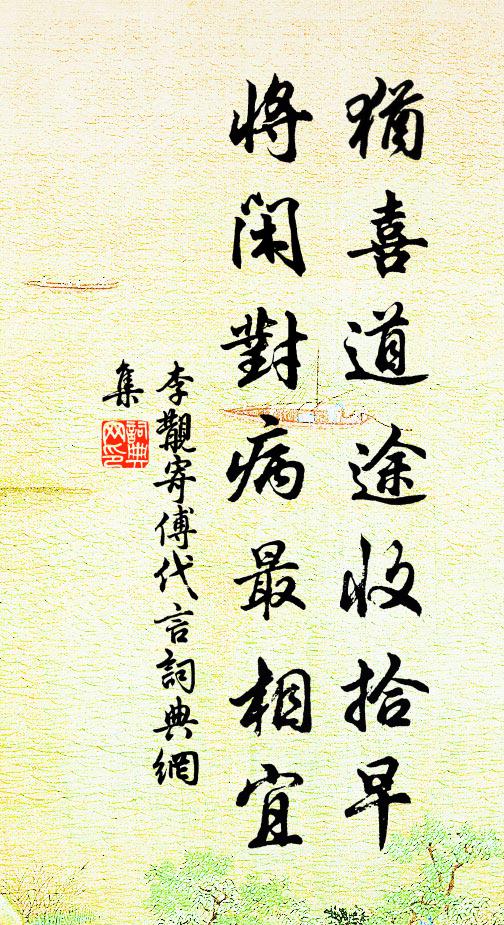 猶喜道途收拾早
將閑對病最相宜
李觀寄傅代言詞典網
集
詞典
网印